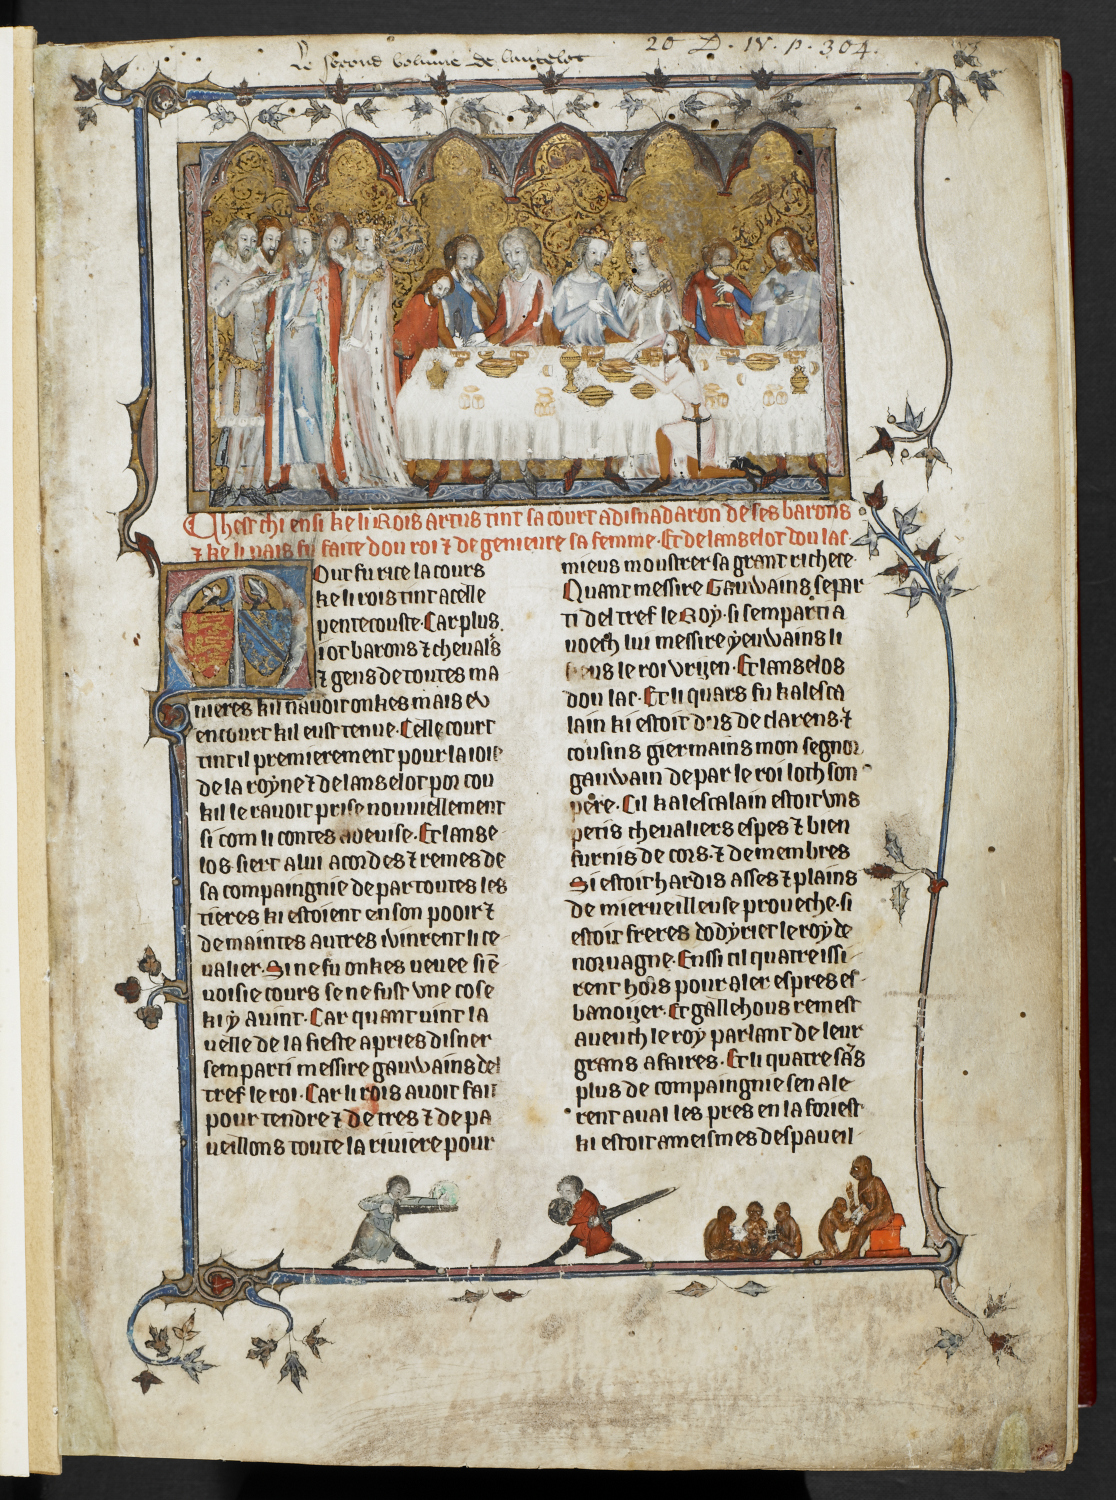 Le second volume de lancelot
20 D. IV. p. 304.
Chest chi ensi ke li Rois artus tint sa court a disnadaron de ses barons
⁊ ke li pais fu faite dou roi ⁊ de genieure sa femme. Et de lanselot dou lac.
Out fu rice la cours
ke li rois tint a celle
pentecouste. Car plus
i ot barons ⁊ cheualrs
⁊ gens de toutes ma
nieres kil nauoit onkes mais eu
en court kil eust tenue. Celle court
tint il premierement pour la ioie
de la royne ⁊ de lanselot por cou
kil le rauoit prise nouuiellement
si com li contes deuise. Et lanse
los siert a lui acordes ⁊ remes de
sa compaingnie de par toutes les
tieres ki estoient en son pooir ⁊
de maintes autres i vinrent li ce
ualier. Si ne fu onkes ueue si en
uoisie cours se ne fust vne cose
ki y auint. Car quant uint la
uelle de la fieste apries disner
sem parti messire gauwains del
tref le roi. Car li rois auoit fait
pour tendre ⁊ de tres ⁊ de pa
ueillons toute la riuiere pour
miens moustrer sa grant richete.
Quant messire Gauwains se par
ti del tref le Roy. si sem parti a
uoech lui messire yeuwains li
le roi vriien. Et lanselos
dou lac. Et li quars fu kalesca
lain ki estoit dus de clarens. ⁊
cousins giermains mon segnor
gauwain de par le roi loth son
pere. Cil kalescalain estoit vns
petis cheualiers espes ⁊ bien
furnis de cors. ⁊ de membres
Si estoit hardis asses ⁊ plains
de mierueilleuse proueche. si
estoit freres dodyriet le roy de
noruagne. Enssi cil quatre issi
rent hors pour aler espres es
banoiier. Et gallehous remest
auench le roy parlant de leur
grans afaires. Et li quatre sans
plus de compaingnie sen ale
rent aual les pres en la foriest
ki estoit a meismes des paueil